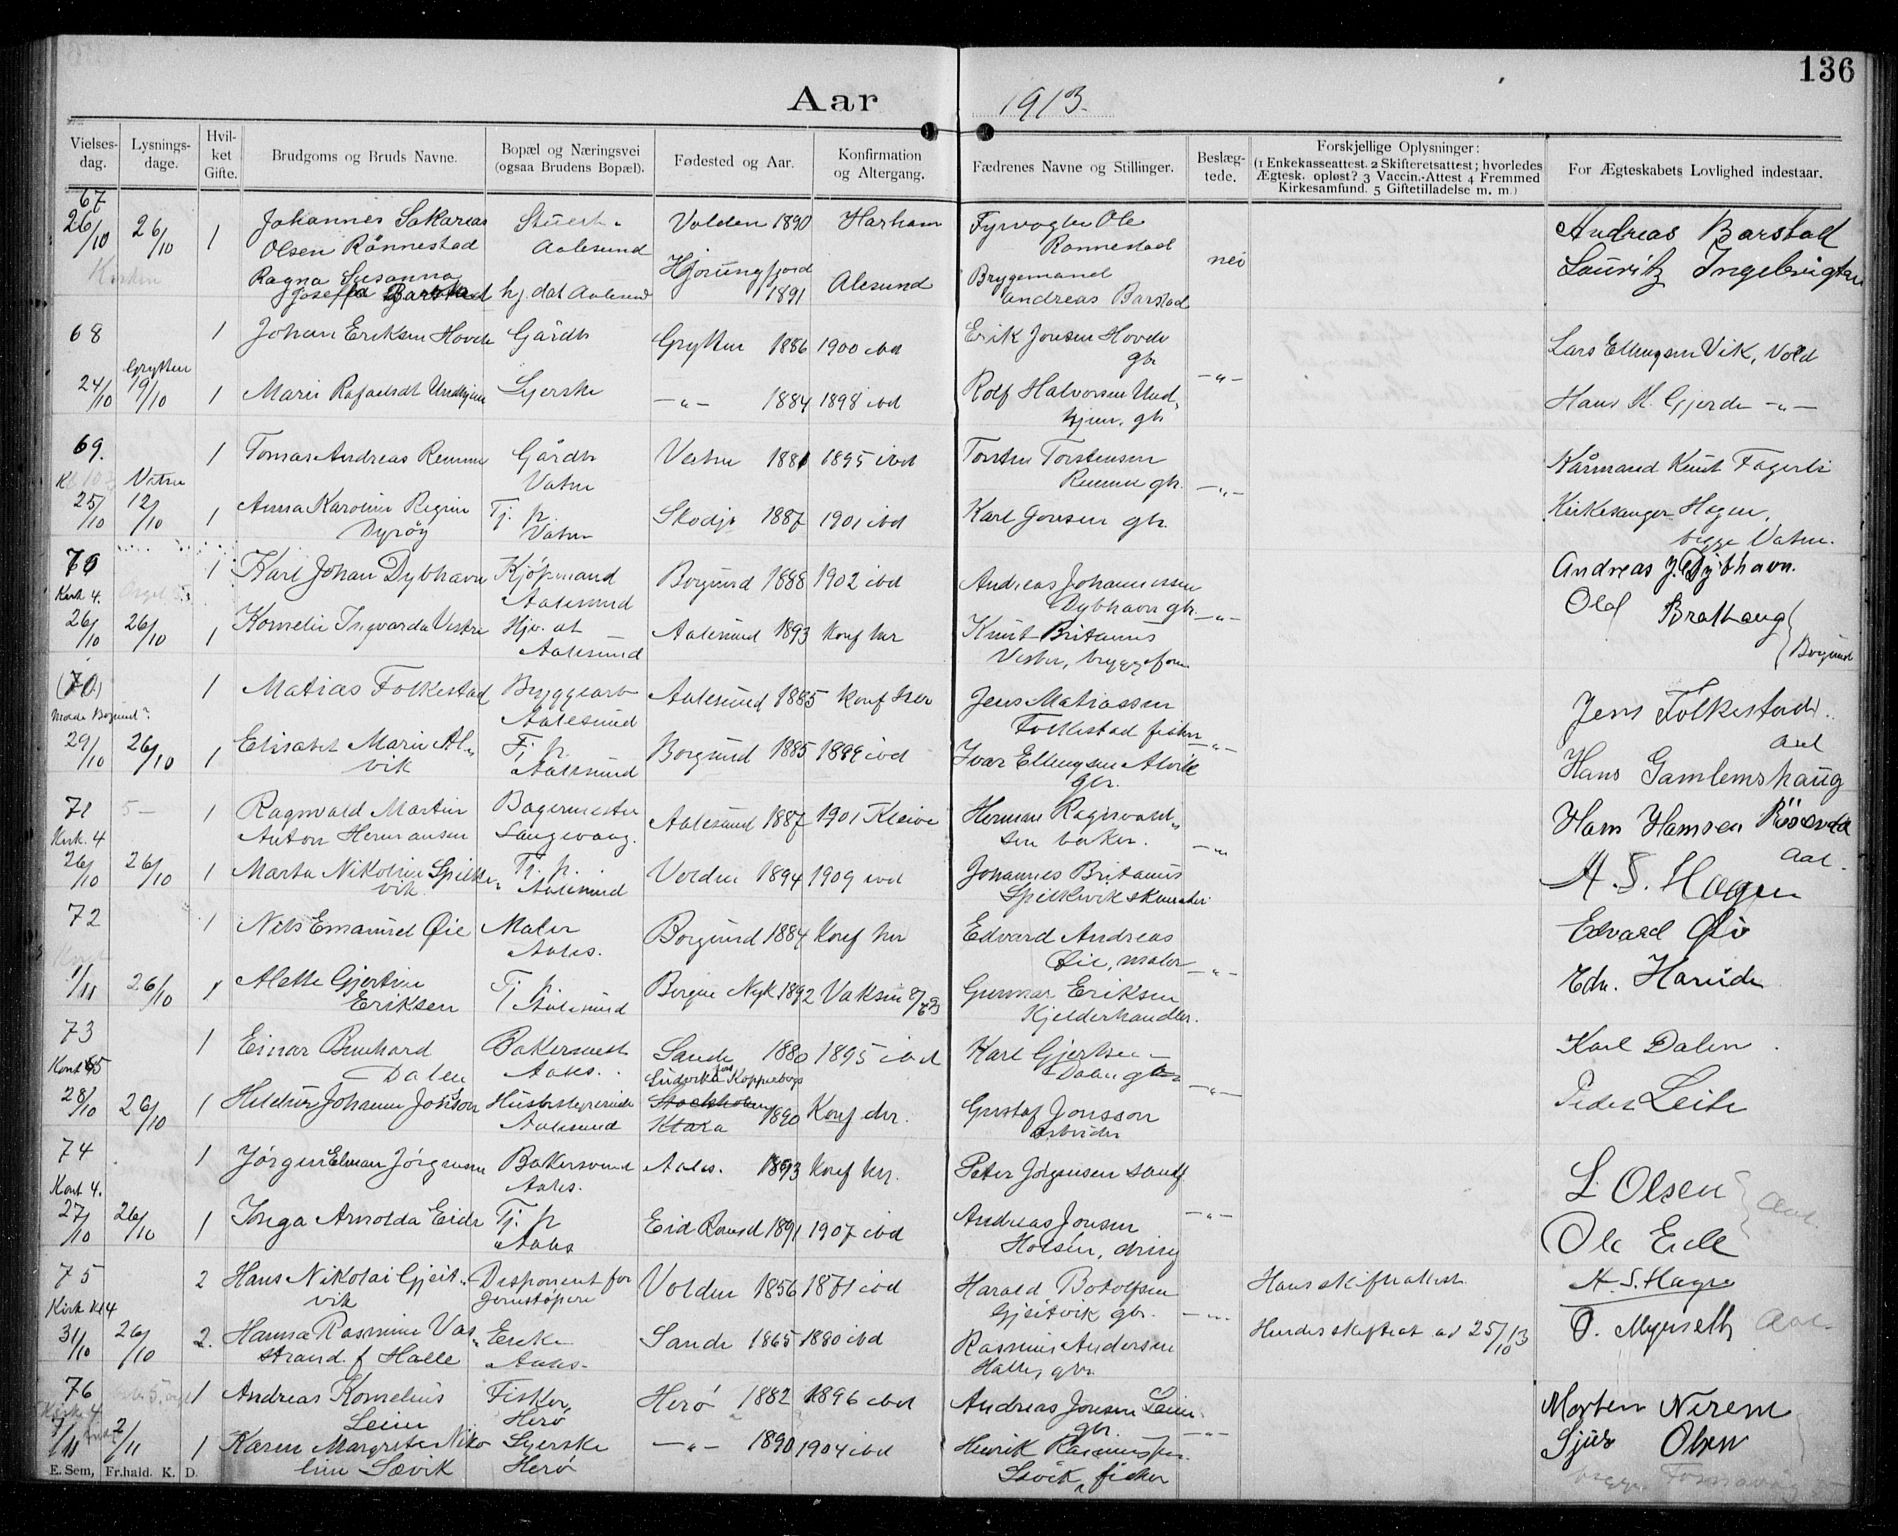 136
Aar 1913.
Vielses-dag. Lysnings-dage. Hvil-ket Gifte. Brudgoms og Bruds Navne. Bopæl og Næringsvei (ogsaa Brudens Bopæl). Fødested og Aar. Konfirmation og Altergang. Fædrenes Navne og Stillinger. Beslæg-tede. Forskjellige Oplysninger: (1 Enkekasseattest. 2 Skifteretsattest; hvorledes Ægtesk. opløst? 3 Vaccin.-Attest 4 Fremmed Kirkesamfund. 5 Giftetilladelse m. m.) For Ægteskabets Lovlighed indestaar.
67
26/10 26/10 1 Johannes Sakarias Volden 1890 Harham Fyrvogter Ole Andreas Barstad
Olsen Rønnestad Aalesund Rønnestad
Ragna Susanna Hjørungfjord Brygemand nei Lauritz
Josefa Barstad hj. dat Aalesund 1891 Alesund Andreas Barstad
68 1 Johan Eriksen Hovde Gårdbr Grytten 1886 1900 ibd Erik Jonsen Hovde Lars Ellingsen Vik, Vold
Grytten gbr
24/10 19/10 1 Marie Rafaelsdt Undhjem Syerske -"- 1884 1898 ibd Rolf Halvorsen Und- -"- Hans K. Gjerde -"-
hjem, gbr
69. 1 Tomas Andreas Remme Gårdbr Vatne 1881 1895 ibd Torsten Torstensen Kårmand Knut Fagerli
Vatne Vatne Remme gbr. -"-
25/10 12/10 1 Anna Karoline Regine Tj. p. Skodje 1887 1901 ibd Karl Jonsen gbr. Kirkesanger Hagen,
Dyrøy Vatne begge Vatne.
70 1 Karl Johan Dybhavn Kjøpmand Borgund 1888 1902 ibd Andreas Johannessen Andreas J. Dybhavn.
Kirk 4. Aalesund Dybhavn gbr. -"- Olaf Brathaug
26/10 26/10 1 Kornelie Ingvarda Vestre Hjv. at Aalesund 1893 Konf her Knut Britanus Borgund
Aalesund Vestre, bryggeform
(70) 1 Matias Folkestad Bryggearb Aalesund 1885 Konf her Jens Matiassen Jens Folkestad
Aalesund Folkestad fisker -"- Aal
29/10 26/10 1 Elisabet Marie Al- Tj. p. Borgund 1885 1899 ibd Ivar Ellingsen Alvik Hans Gamlemshaug
vik Aalesund gbr.
71 1 Ragnvald Martin Bagermester Aalesund 1887 1901 Kleive Herman Ragnvald- Hans Hansen
Kirk. 4 Anton Hermansen Langevaag. sen baker. -"- Aal.
26/10 26/10 1 Marta Nikoline Spilke- Tj. p. Volden 1894 1909 ibd Johannes Britanus A. S. Hagen
vik Aalesund Spilkevik
72 1 Nils Emanuel Øie Maler Borgund 1884 Konf her Edvard Andreas Edvard Øie
Aales. Øie, maler -"-
1/11 26/10 1 Alette Gjertine Tj. p. Bergen Nyk 1892 Gunnar Eriksen Edv. Hareide
Eriksen Aalesund Kjelderhandler.
73 1 Einar Bernhard Bakermest Sande 1880 1895 ibd Karl Gjertsen Karl Dalen
Kont 5 Dalen Aales. Ludvika Kopparbergs Dalen gbr -"-
28/10 26/10 1 Johanne Jonsson Husbestyrerinde Stockholm 1890 Konf der. Gustaf Jonsson Peder Leite
Aalesund Klara arbeider
74 1 Jørgen Elman Jørgensen Bakersvend Aales. 1893 Konf her. Peter Jørgensen Sand L. Olsen
Kont 4. Aales. Aal.
27/10 26/10 1 Inga Arnolda Eide Tj. p Eid Romsd 1891 1907 ibd Andreas Jonsen -"- Ole Eide
Aales
75 2 Hans Nikolai Gjeit- Disponent for Volden 1856 1871 ibd Harald Botolfsen Hans skifteattest. A. S. Hagen
Kirk Kl 4 vik Jernstøperi Gjeitvik gbr. -"-
31/10 26/10 2. Hanna Rasmine Vas- Enke Sande 1865 1880 ibd Rasmus Andersen Hendes skifteat ad 25/10 13 O. Myrseth Aal.
strand f Halle Aales. Halle, gbr.
76 1 Andreas Kornelius Fisker Herø 1882 1896 ibd Andreas Jonsen Leine Morten Nerem
Kirke 4 Leine Herø gbr. -"-
7/11 2/11 1 Karen Margrete Niko- Syerske -"- 1890 1904 ibd Henrik Rasmussen Sjur Olsen
line Sævik Herø Sævik, fisker begge Fosnavåg
E. Sem, Fr.hald. K. D.